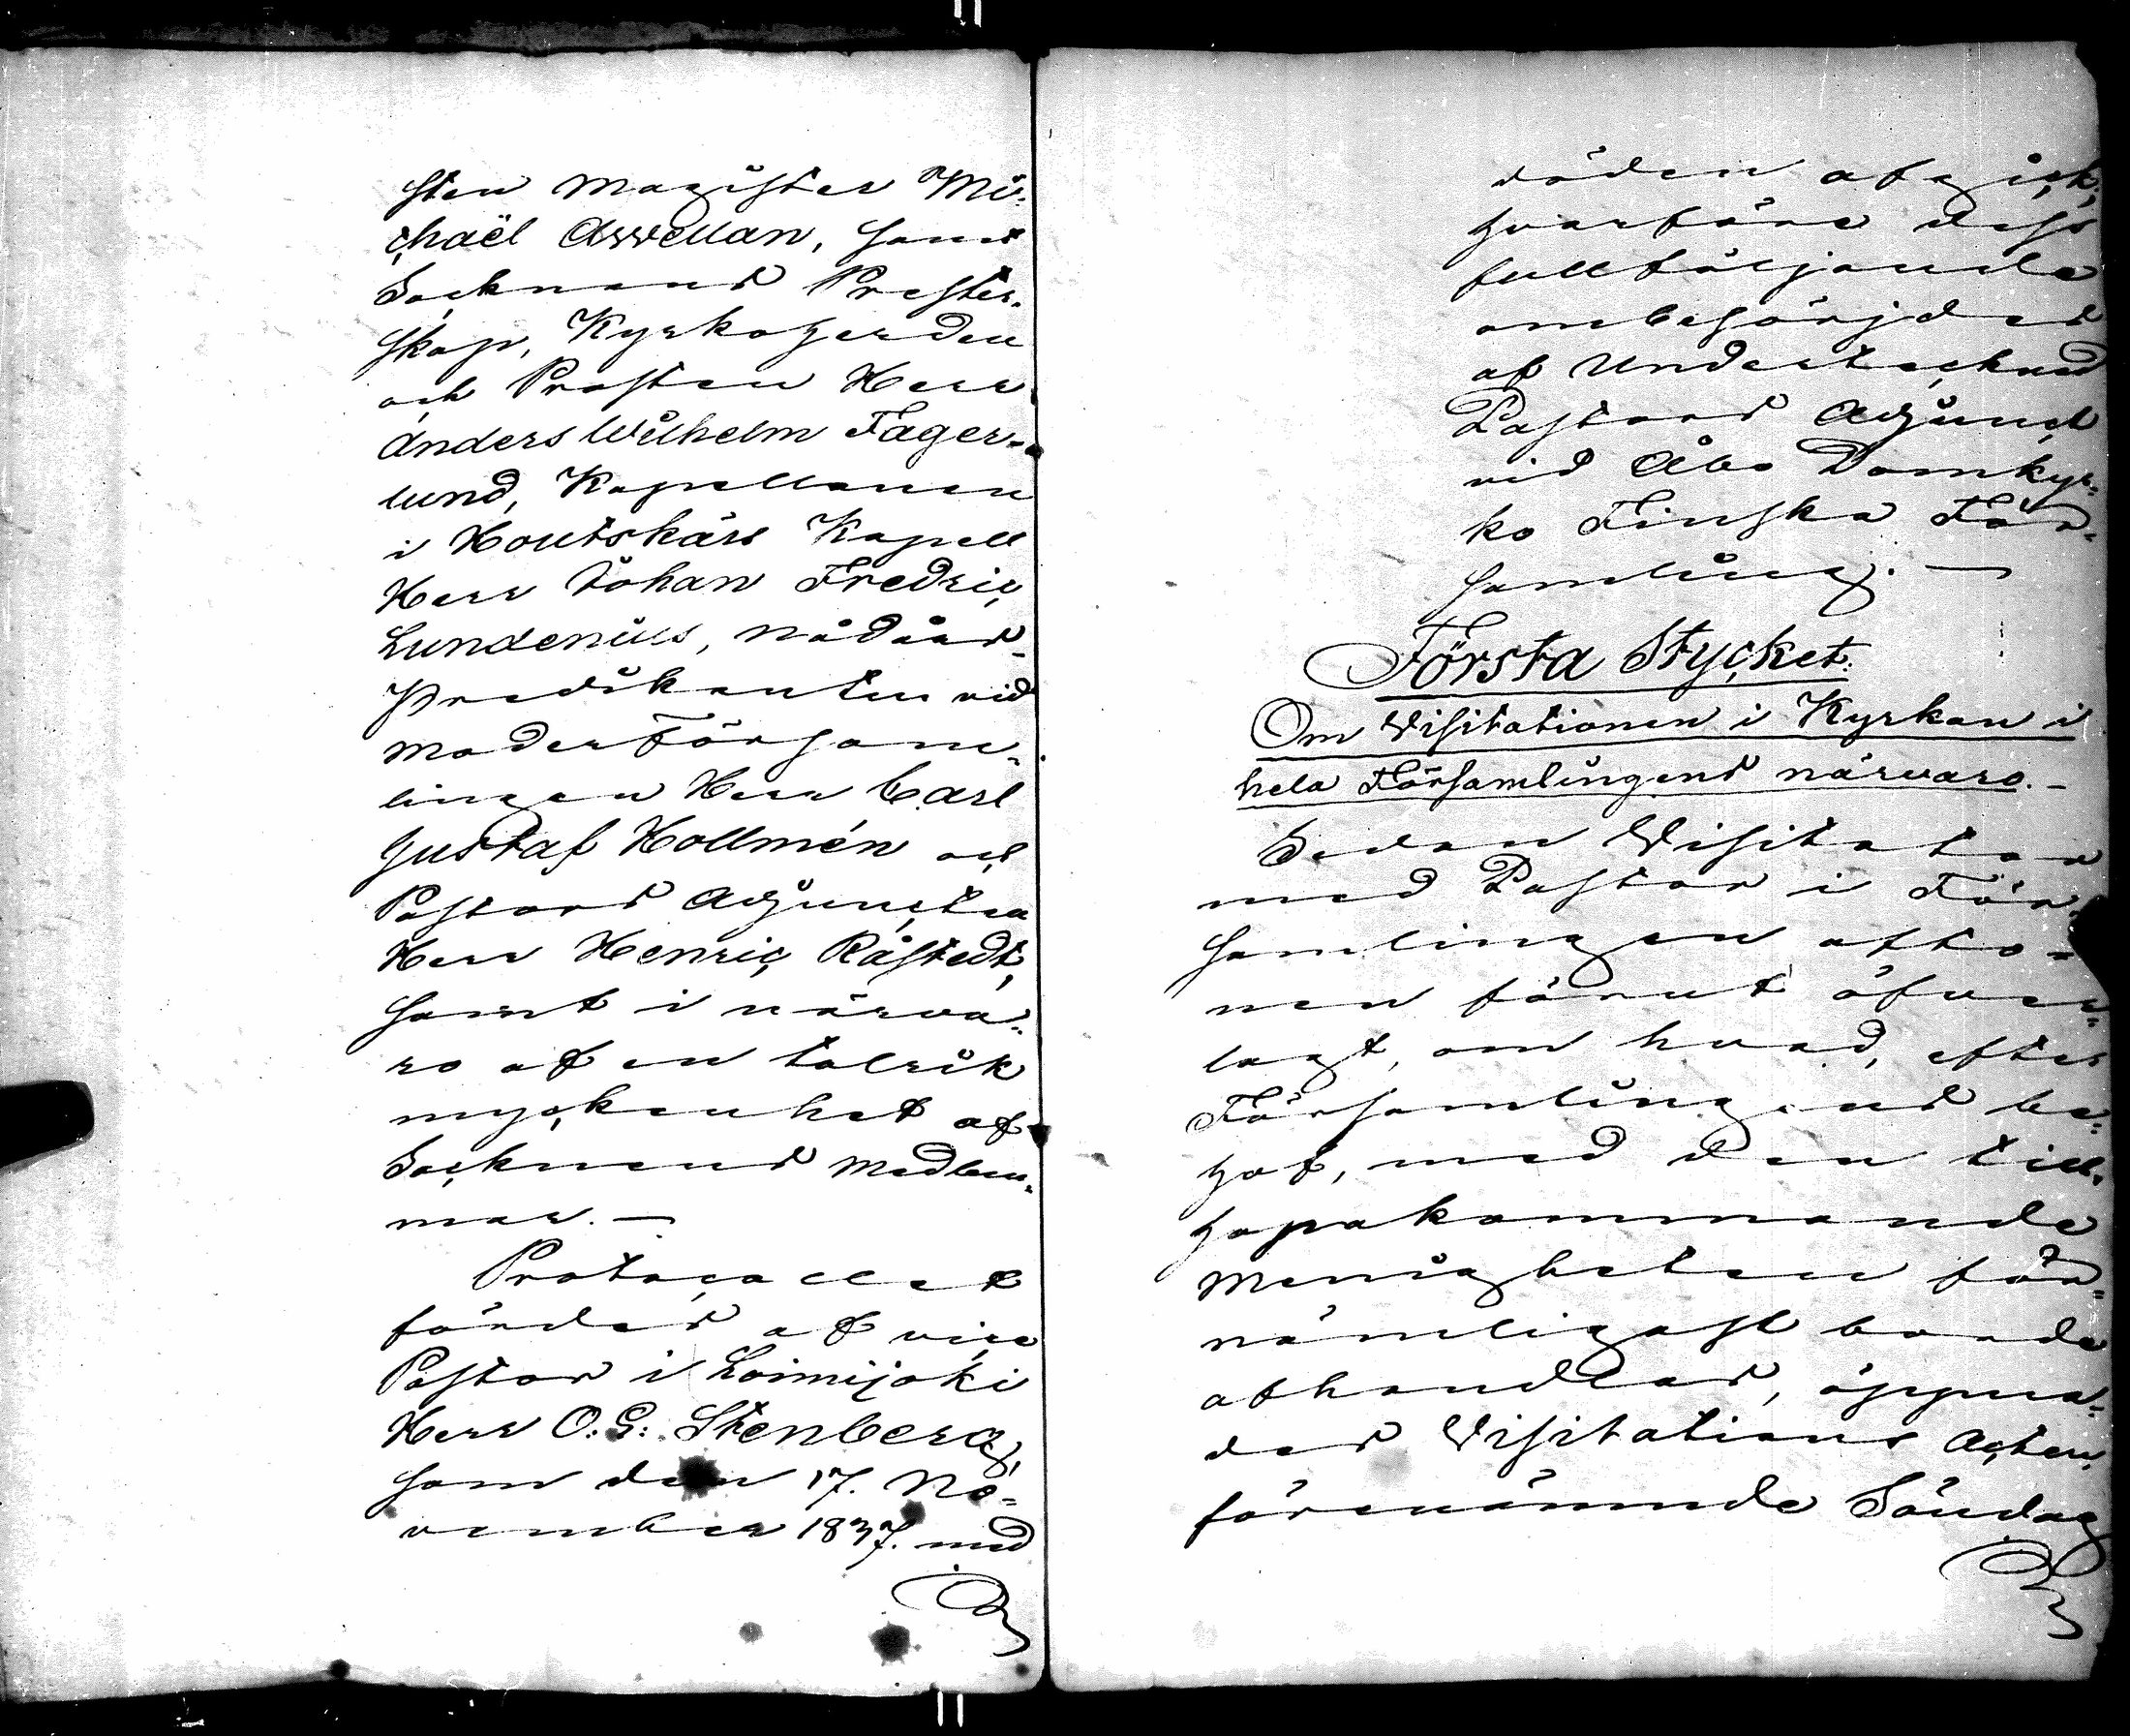 sten Magister Mi-
chaël Avellan, samt
Socknens Prester-
skap, Kyrkoherden
och Prosten Herr
Anders Wilhelm Fager-
lund, Kapellanen
i Houtskärs Kapell
Herr Johan Fredric
Lundenius, Nådårs-
Predikanten vid
Moderförsam-
lingen Herr Carl
Gustaf Hollmén och
Pastors Adjuncten
Herr Henric Råstedt,
samt i närva-
ro af en talrik
myckenhet af
Socknens Medlem-
mar. —
Protocollet
fördes af vice
Pastor i Loimijoki
Herr O. G. Stenberg,
som den 17. No-
vember 1837. med
döden afgick,
hvarföre dess
fullföljande
ombesörjdes
af Undertecknad
Pastors Adjunct
vid Åbo Domkyr-
ko Finska För-
samling. —
Första Stycket.
Om Visitationen i Kyrkan i
hela Församlingens närvaro. —
Sedan Visitator
med Pastor i För-
samlingen afto-
nen förut öfver-
lagt, om hvad, efter
Församlingens be-
hof, med den till-
hopakommande
Menigheten för-
nämligast borde
afhandlas, öppna-
des Visitations Acten
förenämnde Söndag